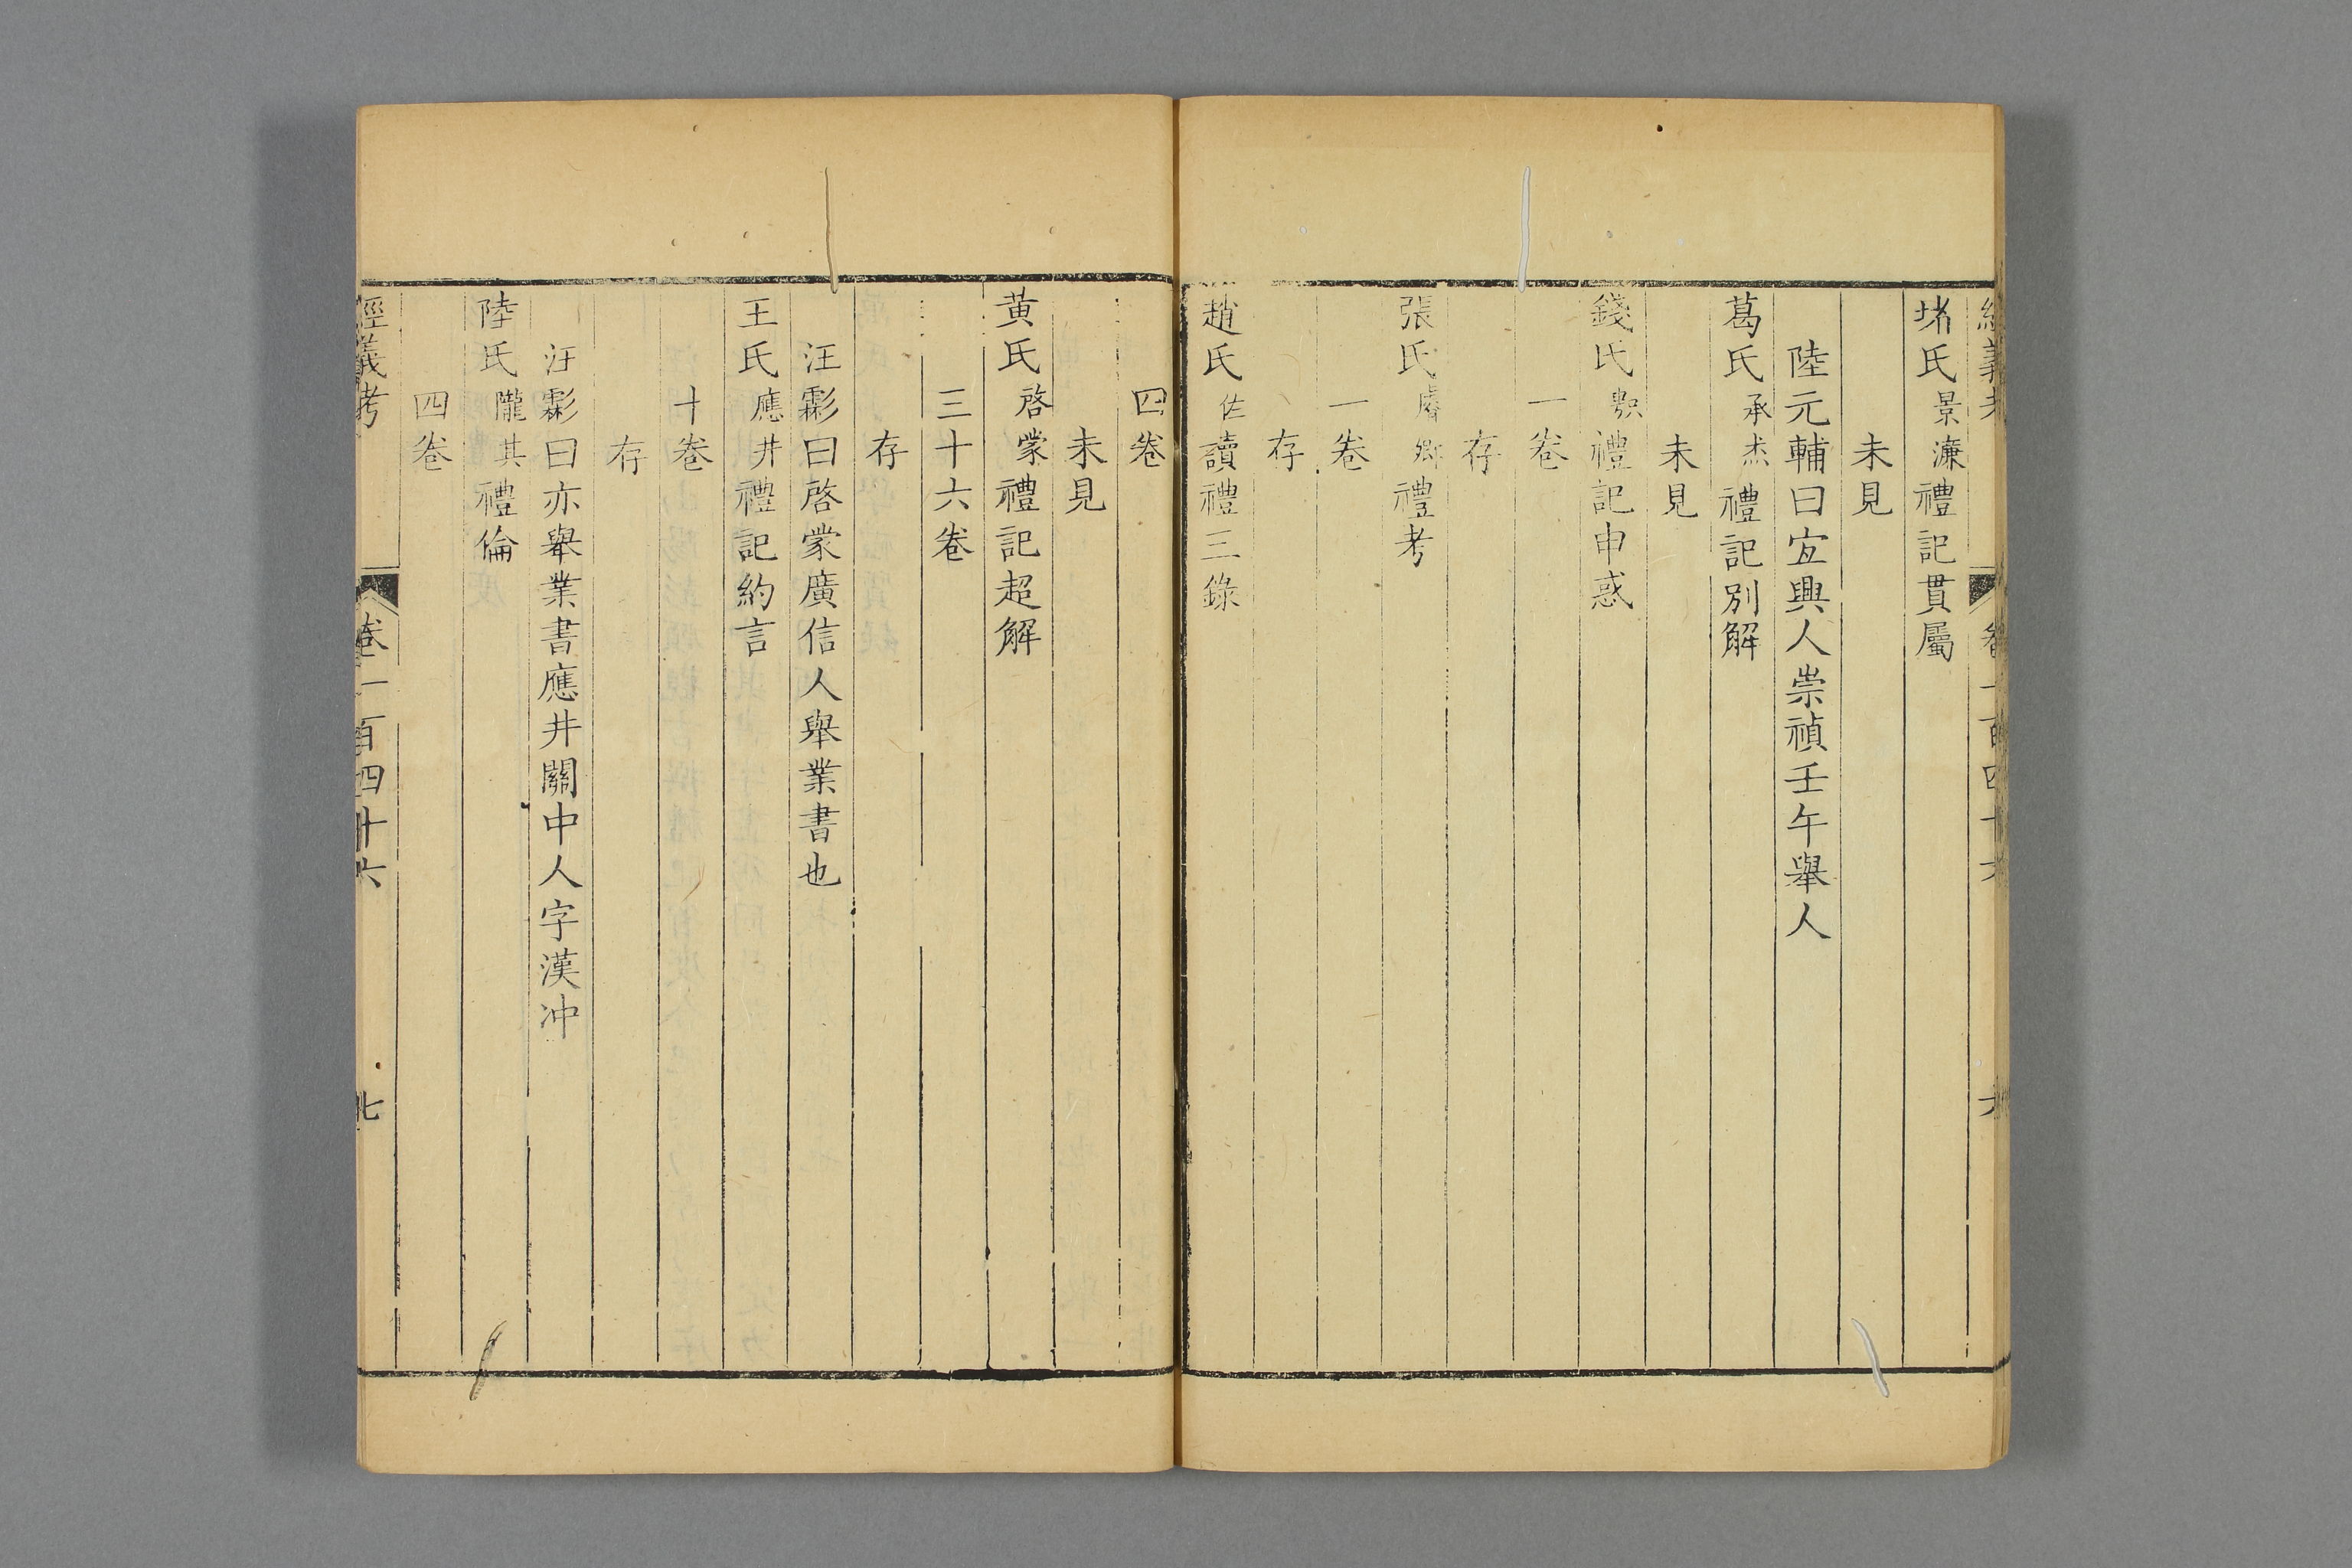 經義考 卷一百四十六 六
堵氏景濂禮記貫屬
未見
陸元輔曰宜興人崇禎壬午舉人
葛氏承杰禮記別解
未見
錢氏禮記申惑
一卷
存
張氏睿卿禮考
一卷
存
趙氏佐讀禮三錄
四卷
未見
黃氏啓蒙禮記超解
三十六卷
存
汪霦曰啓蒙廣信人舉業書也
王氏應井禮記約言
十卷
存
汪霦曰亦舉業書應井關中人字漢冲
陸氏隴其禮倫
四卷
經義考 卷一百四十六 七